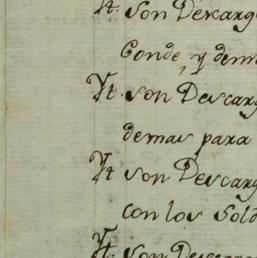 Yt. Son Descarg
Conde, y dem
Yt. Son Descarg
demas para
Yt Son Descarg
con los Sold
Yt. Son Descarg